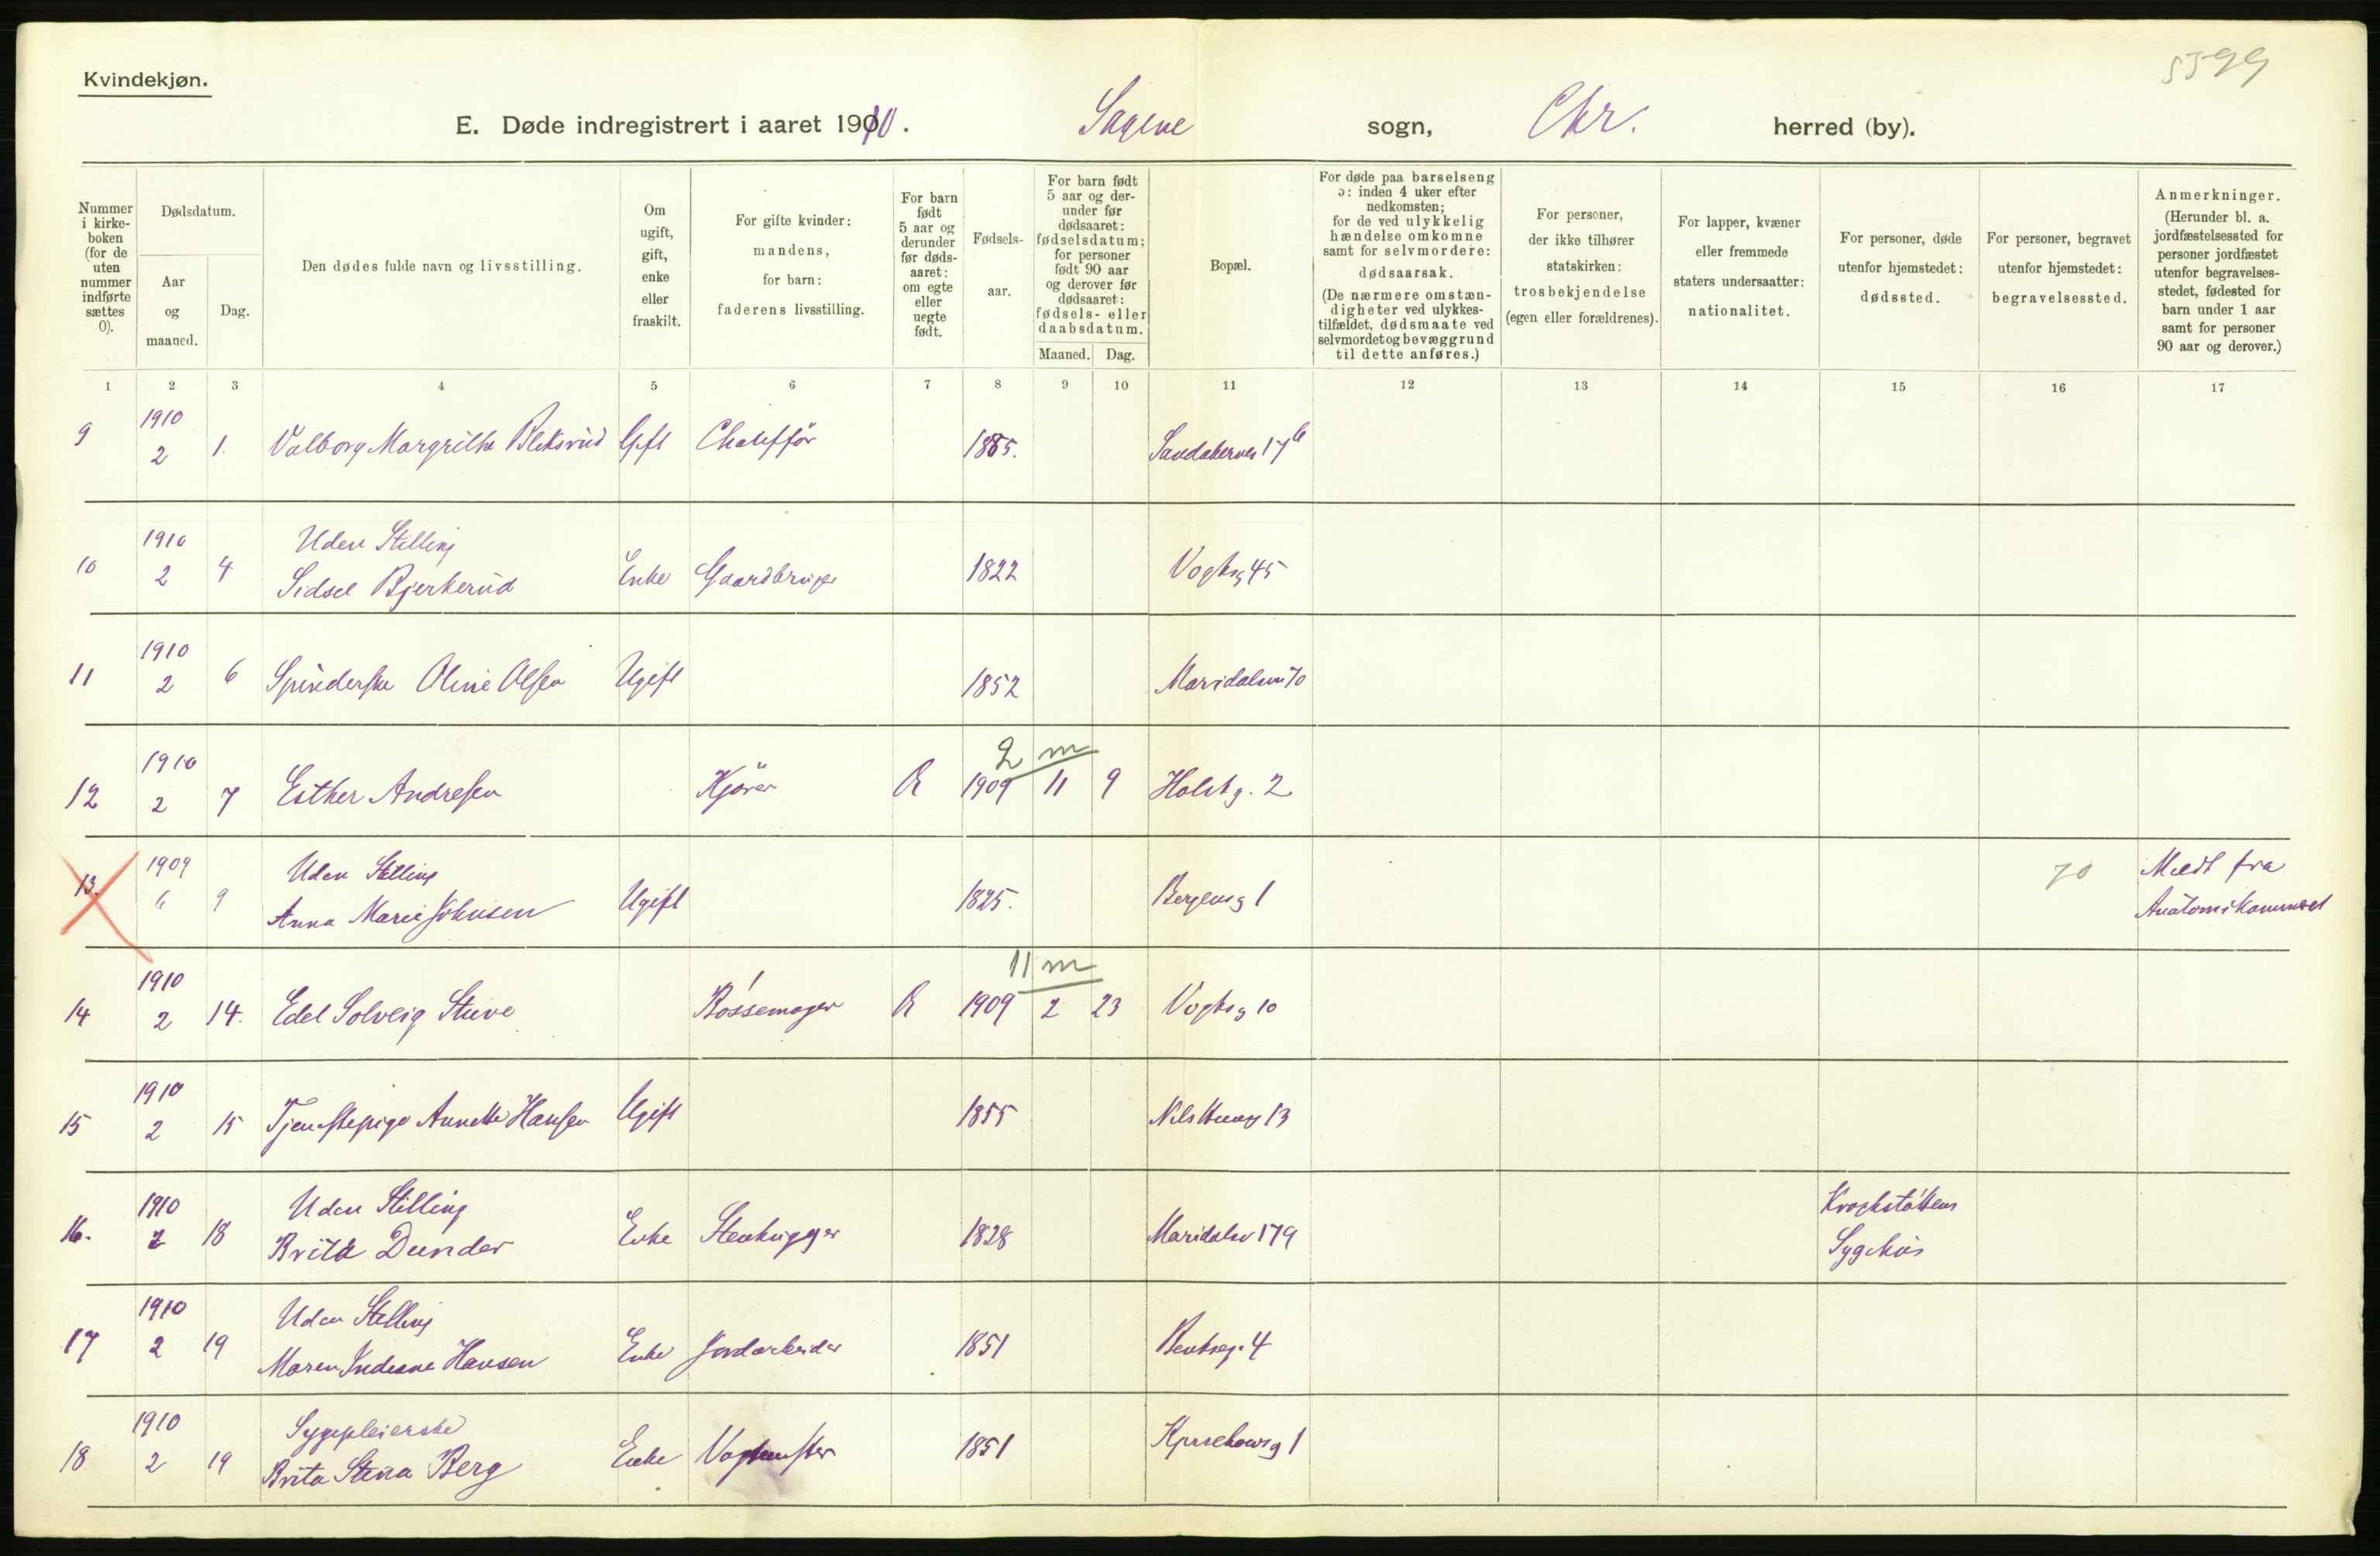 5599
Kvindekjøn.
E. Døde indregistrert i aaret 1910. Sagene sogn, Chr. herred (by).
Nummer i kirke-boken (for de uten nummer indførte sættes 0).
Dødsdatum.
Aar og maaned.
Dag.
Den dødes fulde navn og livsstilling.
Om ugift, gift, enke eller fraskilt.
For gifte kvinder: mandens, for barn: faderens livsstilling.
For barn født 5 aar og derunder før døds-aaret: om egte eller uegte født.
Fødsels-aar.
For barn født 5 aar og der-under før dødsaaret: fødselsdatum; for personer født 90 aar og derover før dødsaaret: fødsels- eller daabsdatum.
Maaned. Dag.
Bopæl.
For døde paa barselseng ɔ: inden 4 uker efter nedkomsten; for de ved ulykkelig hændelse omkomne samt for selvmordere: dødsaarsak. (De nærmere omstæn-digheter ved ulykkes-tilfældet, dødsmaate ved selvmordet og bevæggrund til dette anføres.)
For personer, der ikke tilhører statskirken: trosbekjendelse (egen eller forældrenes).
For lapper, kvæner eller fremmede staters undersaatter: nationalitet.
For personer, døde utenfor hjemstedet: dødssted.
For personer, begravet utenfor hjemstedet: begravelsessted.
Anmerkninger. (Herunder bl. a. jordfæstelsessted for personer jordfæstet utenfor begravelses-stedet, fødested for barn under 1 aar samt for personer 90 aar og derover.)
1 2 3 4 5 6 7 8 9 10 11 12 13 14 15 16 17
1910
9 2 1. Valborg Margrithe Bleksrud Gift Chauffør 1885. Sandakerven 17b
1910 Uden Stilling
10 2 4 Sidsel Bjerkerud Enke Gaardbruger 1822 Vogtsg 45
1910
11 2 6 Spinderske Oline Olsen Ugift 1852 Maridalsvn 70
1910 2 m
12 2 7 Esther Andresen Kjører E 1909 11 9 Holstg. 2
1909 Uden Stilling 70 Medt fra
13. 6 9 Anna Marie Johnsen Ugift 1825. Bergensg 1 Anatomikammeret
1910 11 m
14 2 14. Edel Solveig Stuve Bøssemager E 1909 2 23 Vogtsg 10
1910
15 2 15 Tjenestepige Annette Hansen Ugift 1855 Nils 13
1910 Uden Stilling Krogstøttens
16. 2 18 Brita Dunder Enke Stenhugger 1828 Maridalsv 179 Sygehus
1910 Uden Stilling
17 2 19 Maren Indiane Hansen Enke Jordarbeider 1851 Bentseg. 4
1910 Sygepleierske
18 2 19 Brita Stina Berg Enke Vogtmester 1851 1